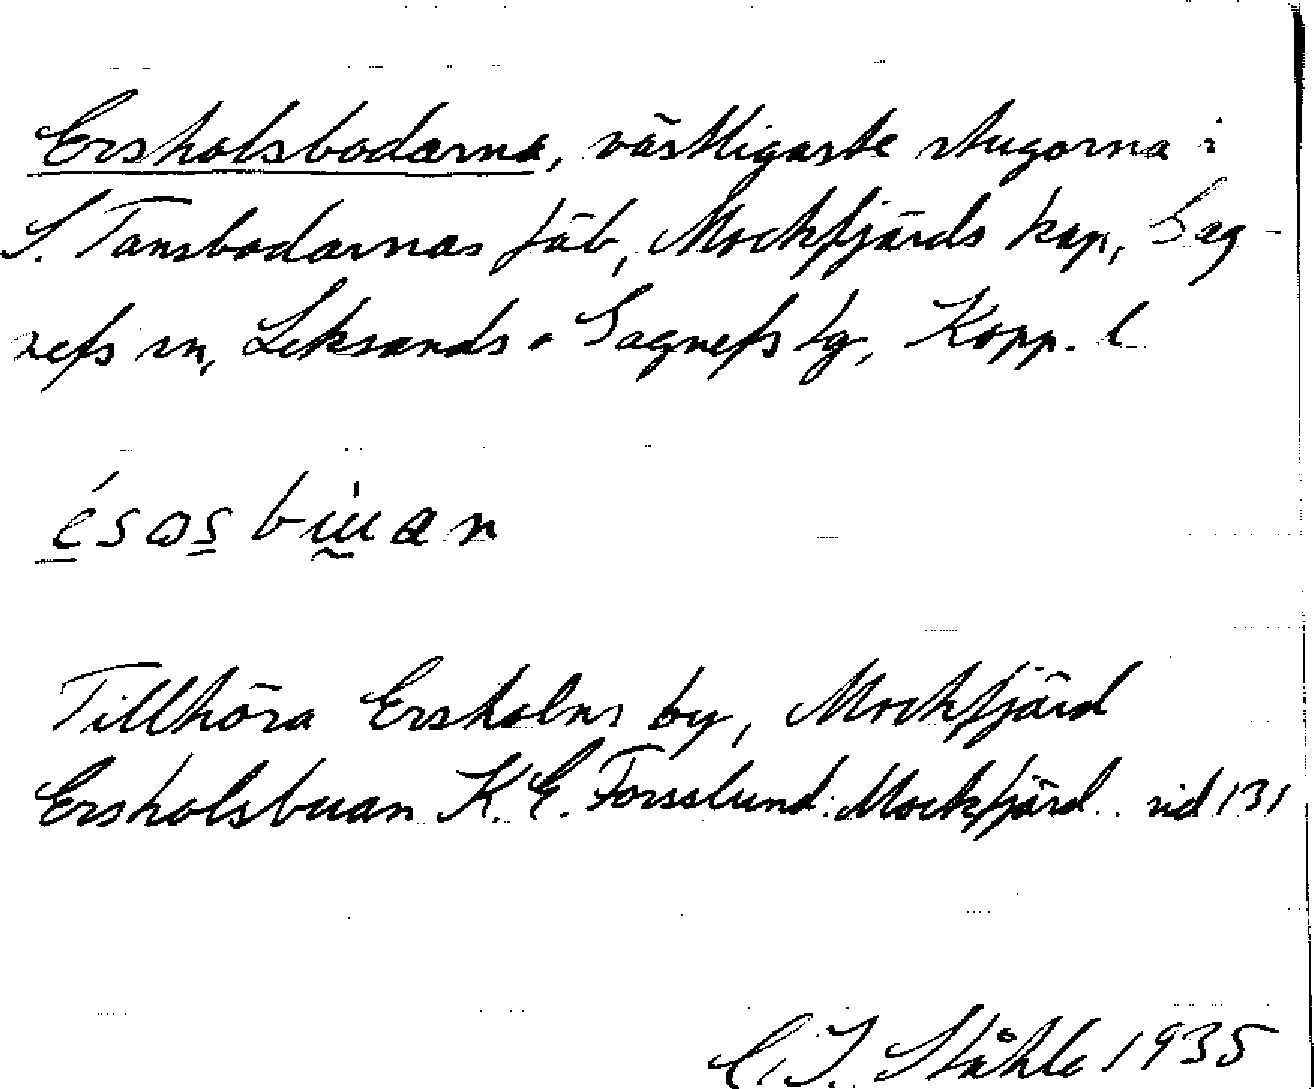 Ersholsbodarna, västligaste stugorna i
S. Tansbodarnas fäb, Mockfjärds kap, Gag-
nefs sn, Leksands o Gagnefs tg, Kopp. l
Tillhöra Ersholns by, Mockfjärd
Ersholsbuan K. E. Forsslund: Mockfjärd.. sid 131
C. I. Ståhle 1935